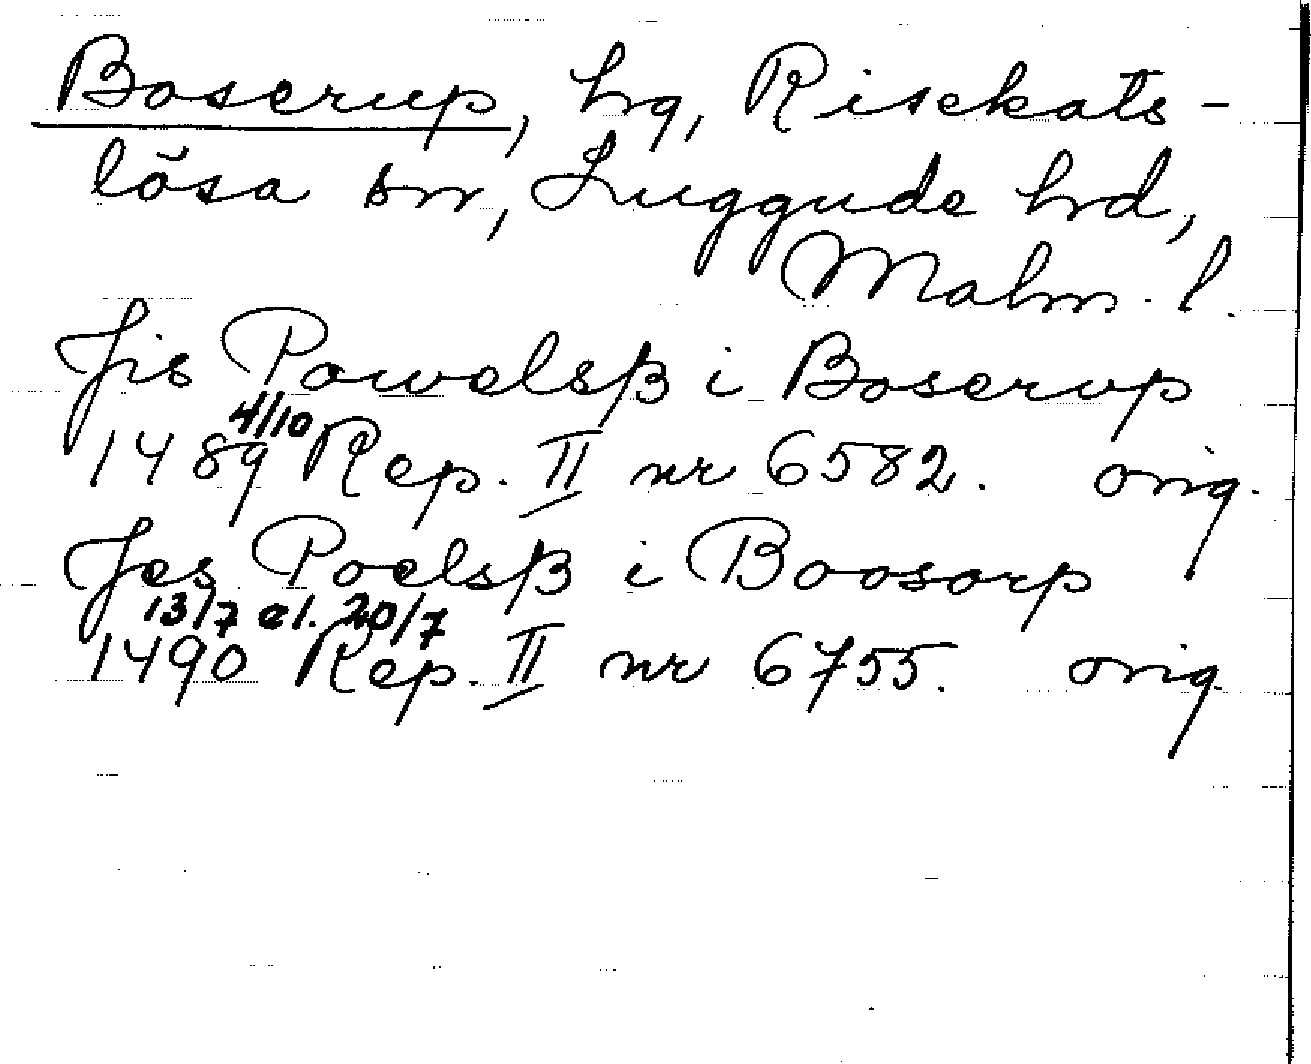 Boserup, hg, Risekats-
lösa sn, Luggude hrd,
Malm. l.
Jis Powelsß i Boserup
4/10
1489 Rep. II nr 6582. orig.
Jes Poelsß i Boosorp
13/7 el. 20/7
1490 Rep. II nr 6755. orig